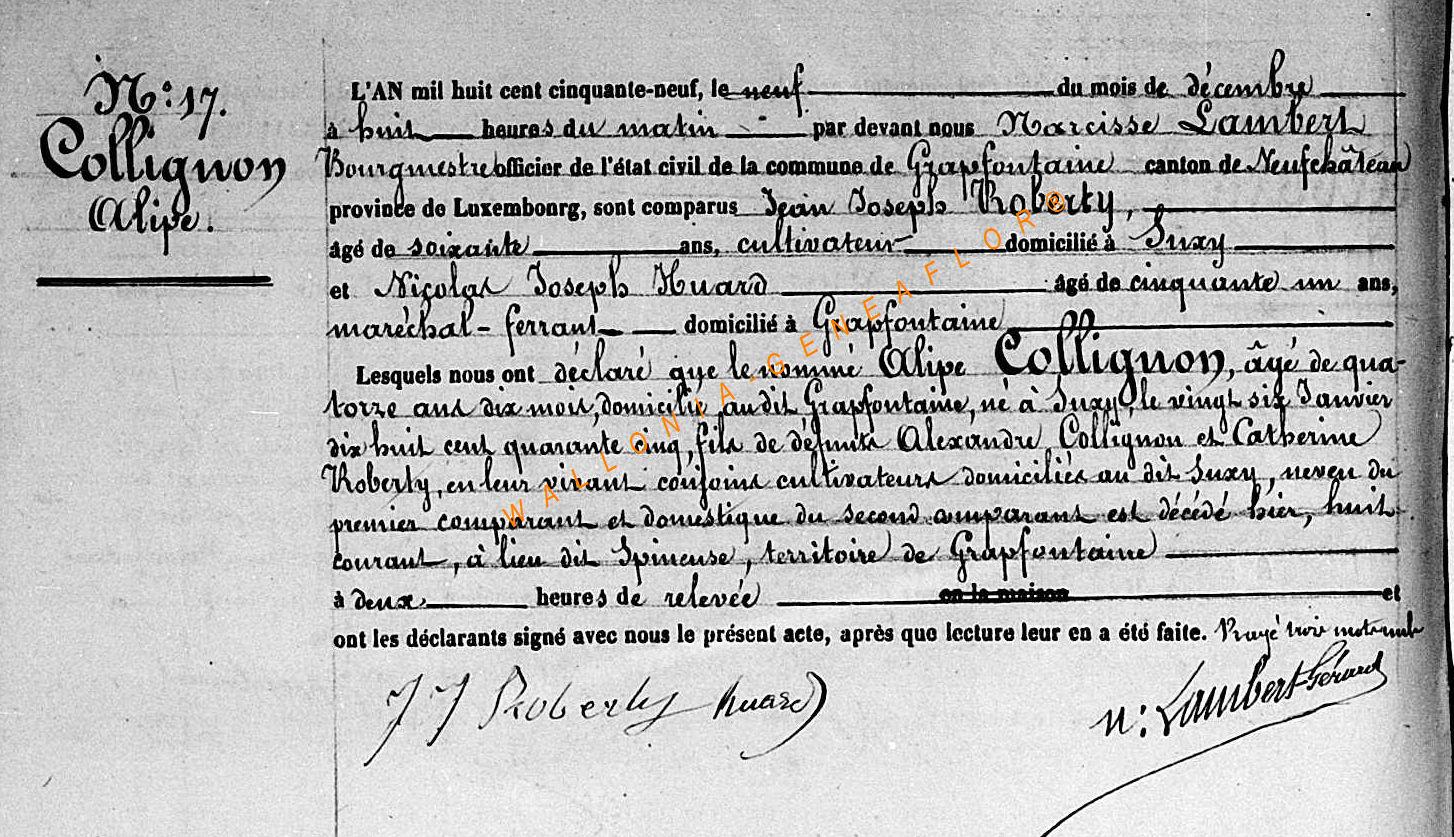 N.º 17.
Collignon
Alipe.
L'AN mil huit cent cinquante-neuf, le neuf du mois de décembre
à huit heures du matin par devant nous Narcisse Lambert
Bourgmestre officier de l'état civil de la commune de Grapfontaine canton de Neufchâteau
province de Luxembourg, sont comparus Jean Joseph Roberty,
âgé de soixante ans, cultivateur domicilié à Suxy
et Nicolas Joseph Huard âgé de cinquante un ans,
maréchal-ferrant domicilié à Grapfontaine
Lesquels nous ont déclaré que le nommé Alipe Collignon, âgé de qua-
torze ans dix mois, domicilié audit Grapfontaine, né à Suxy, le vingt six Janvier
dix huit cent quarante cinq, fils de défunts Alexandre Collignon et Catherine
Roberty, en leur vivant conjoins cultivateurs domiciliés au dit Suxy, neveu du
premier comparant et domestique du second comparant est décédé hier, huit
courant, à lieu dit Spineuse, territoire de Grapfontaine
à deux heures de relevée en la maison et
ont les déclarants signé avec nous le présent acte, après que lecture leur en a été faite. Rayé trois mots nuls
J J Roberty huard
n: Lambert-Gérard
WALLONIA-GENEAFLORE